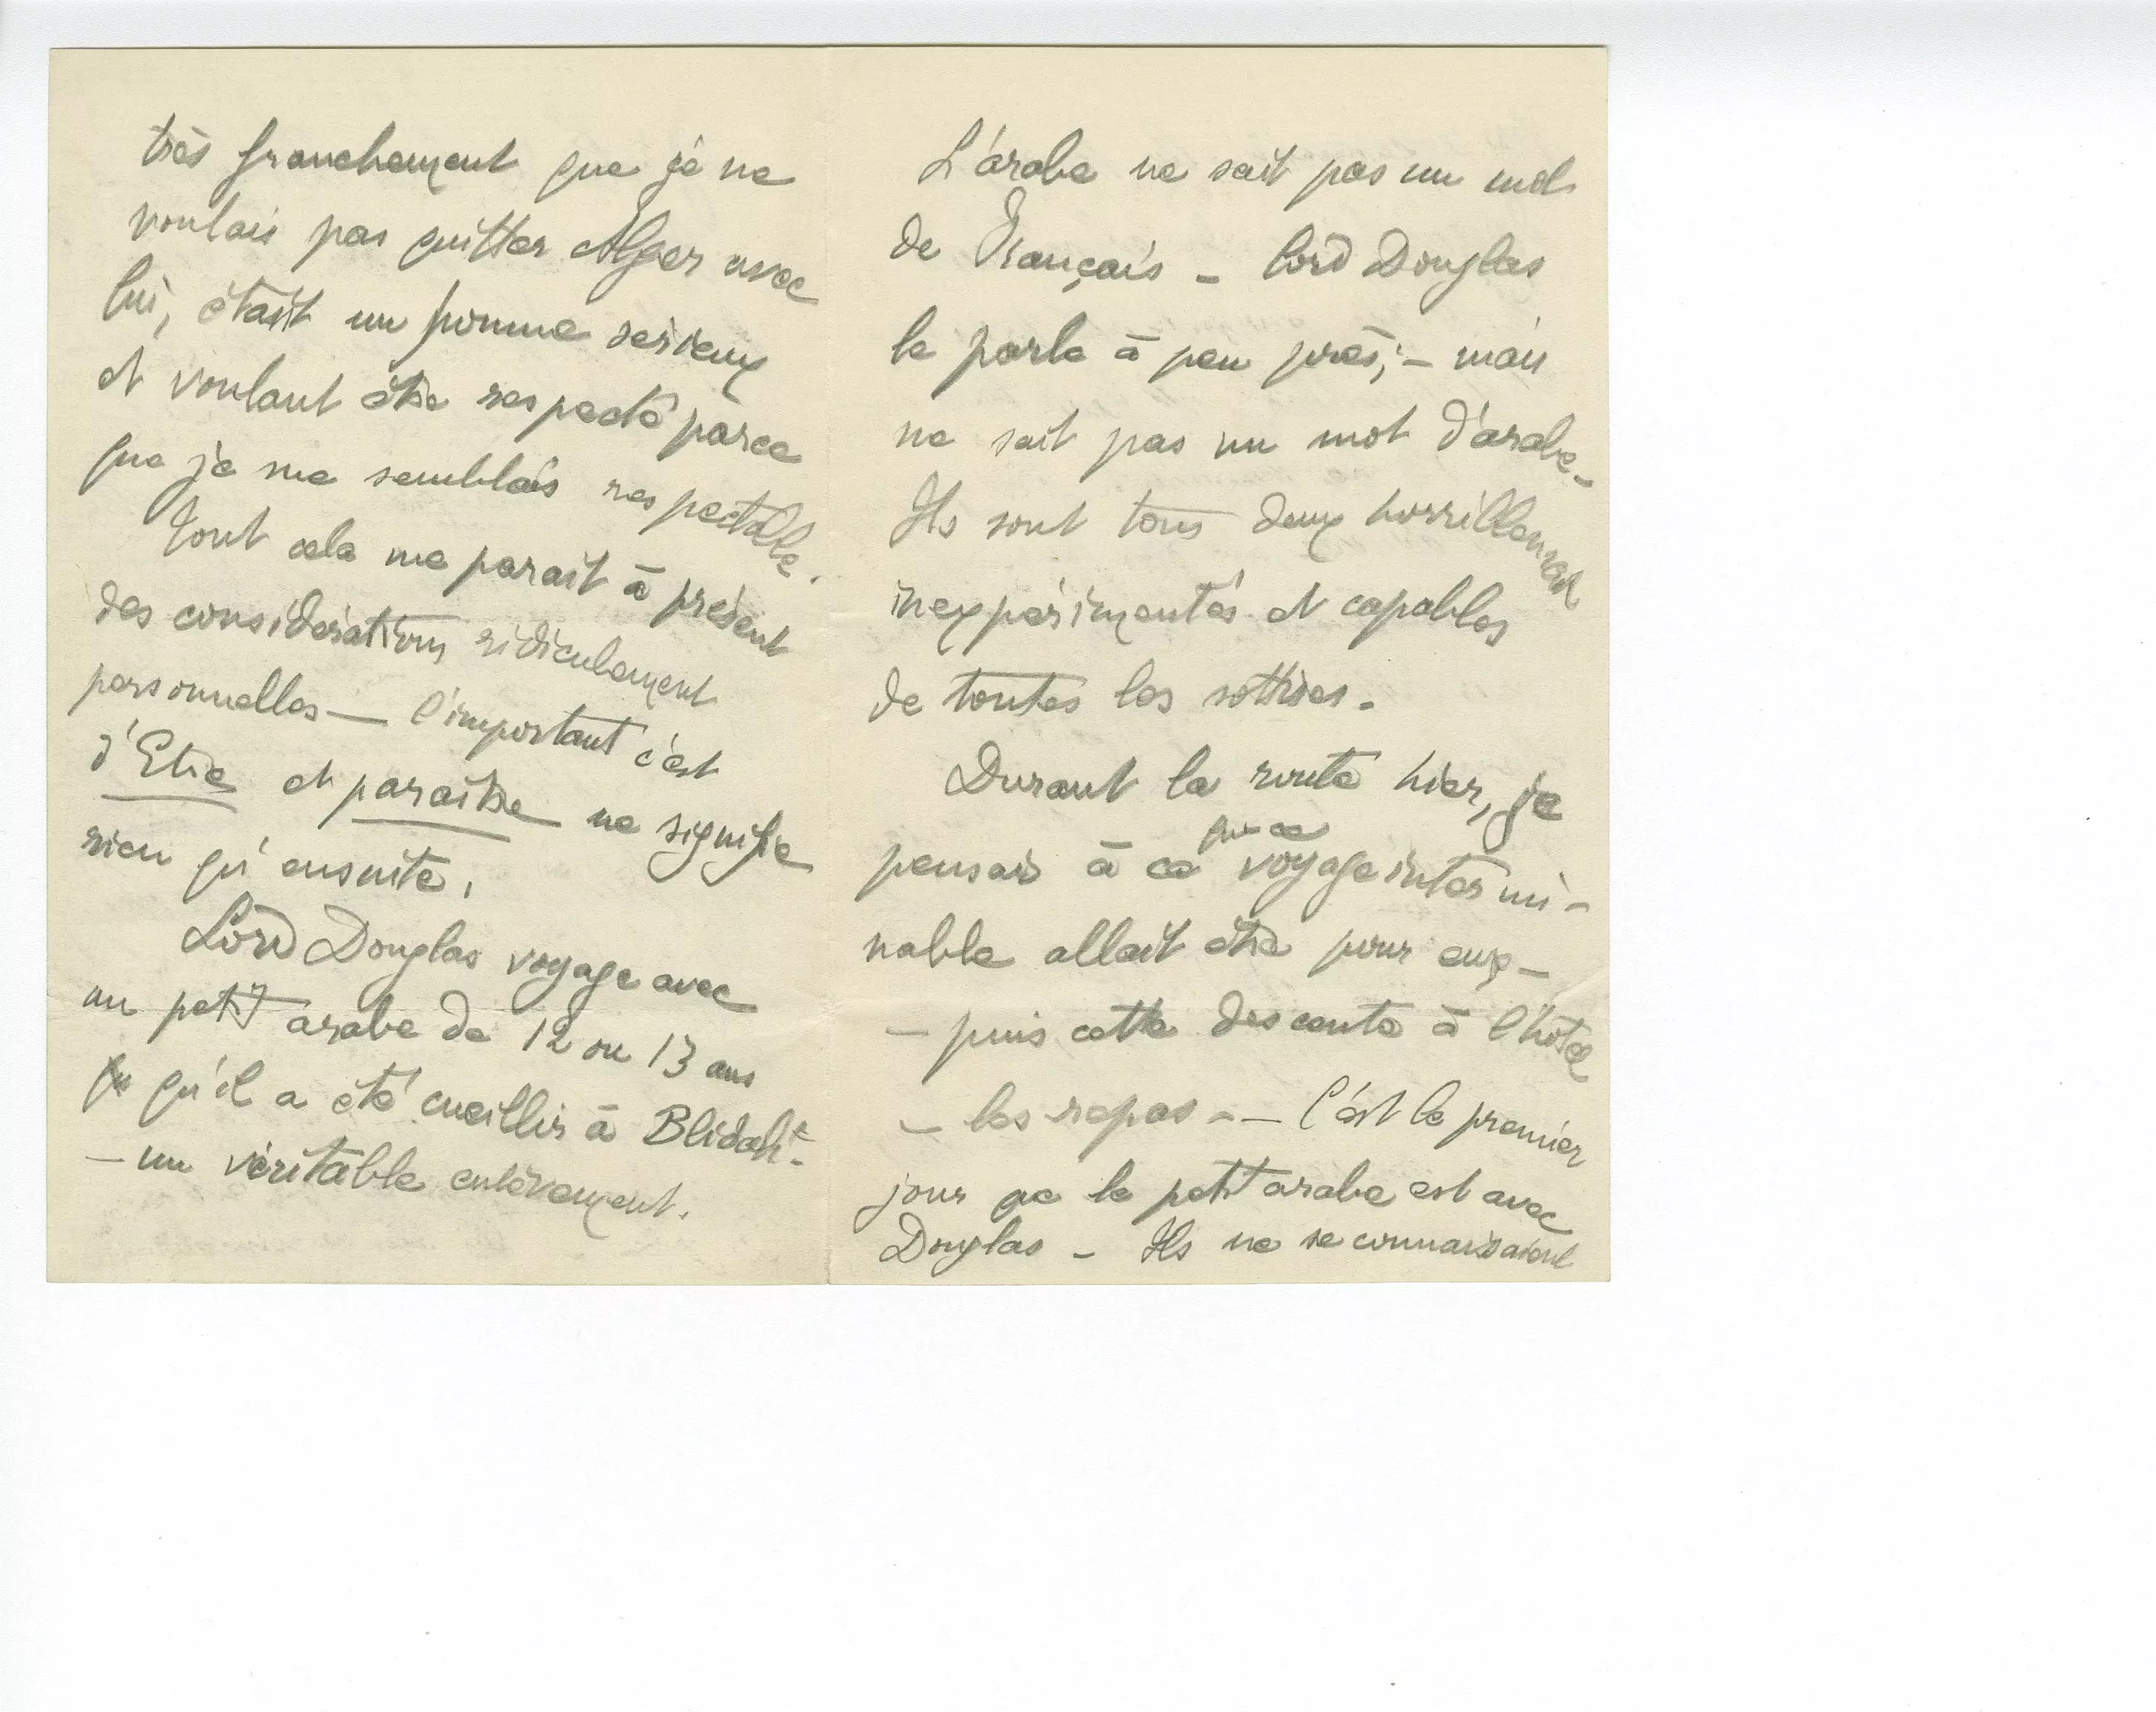 très franchement que je ne
voulais pas quitter Alger avec
lui, étant un homme serieux
et voulant être respecté parce
que je me semblais respectable.
Tout cela me parait à présent
des considerations ridiculement
personnelles — l'important c'est
d'Etre et paraître ne signifie
rien qu'ensuite.
Lord Douglas voyage avec
un petit arabe de 12 ou 13 ans
qu'il a été cueillir à Blidah -
— un véritable enlèvement.
L'arabe ne sait pas un mot
de Français – Lord Douglas
le parle à peu près; – mais
ne sait pas un mot d'arabe –
Ils sont tous deux horriblement
inexpérimentés et capables
de toutes les sottises.
Durant la route hier, je
que ce
pensais à ce voyage intermi-
nable allait être pour eux –
– puis cette descente à l'hotel
– les repas – – C'est le premier
jour que le petit arabe est avec
Douglas – Ils ne se connaissaient